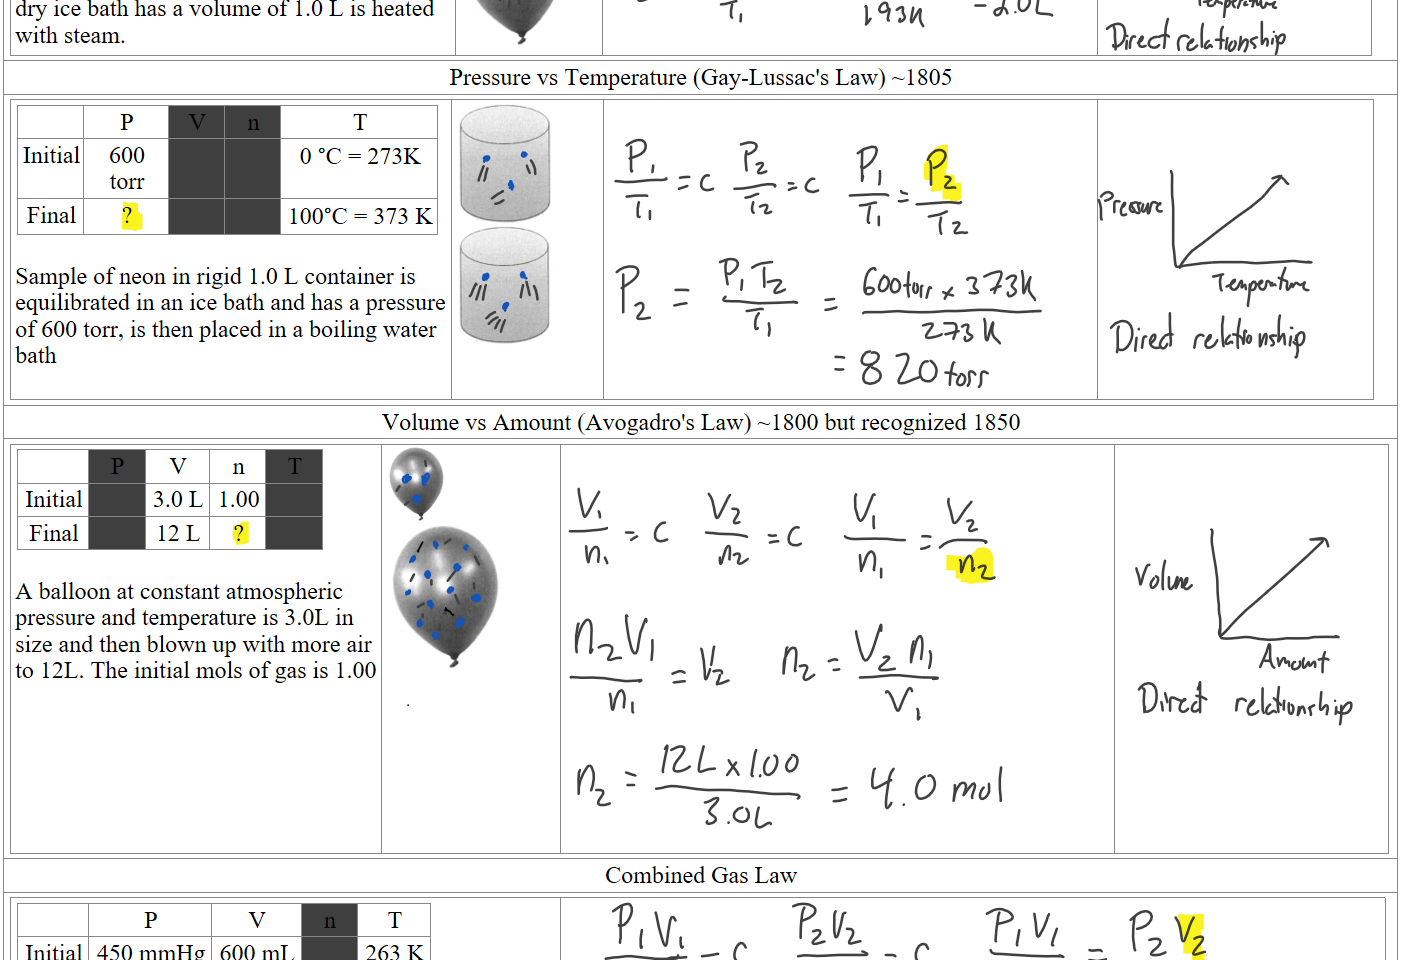 dry ice bath has a volume of 1.0 L is heated
with steam.
T₁ 193K = 2.0L
Temperature
Direct relationship
Pressure vs Temperature (Gay-Lussac's Law) ~1805
P V n T
Initial 600 torr 0 °C = 273K
Final ? 100°C = 373 K
Sample of neon in rigid 1.0 L container is
equilibrated in an ice bath and has a pressure
of 600 torr, is then placed in a boiling water
bath
P₁/T₁ = C P₂/T₂ = C P₁/T₁ = P₂/T₂
P₂ = P₁T₂/T₁ = 600torr x 373K/273K
= 820 torr
Pressure
Temperature
Direct relationship
Volume vs Amount (Avogadro's Law) ~1800 but recognized 1850
P V n T
Initial 3.0 L 1.00
Final 12 L ?
A balloon at constant atmospheric
pressure and temperature is 3.0L in
size and then blown up with more air
to 12L. The initial mols of gas is 1.00
V₁/n₁ = C V₂/n₂ = C V₁/n₁ = V₂/n₂
n₂V₁/n₁ = V₂ n₂ = V₂n₁/V₁
n₂ = 12L x 1.00/3.0L = 4.0 mol
Volume
Amount
Direct relationship
Combined Gas Law
P V n T
Initial 450 mmHg 600 mL 263 K
P₁V₁ = C P₂V₂ = C P₁V₁ = P₂V₂